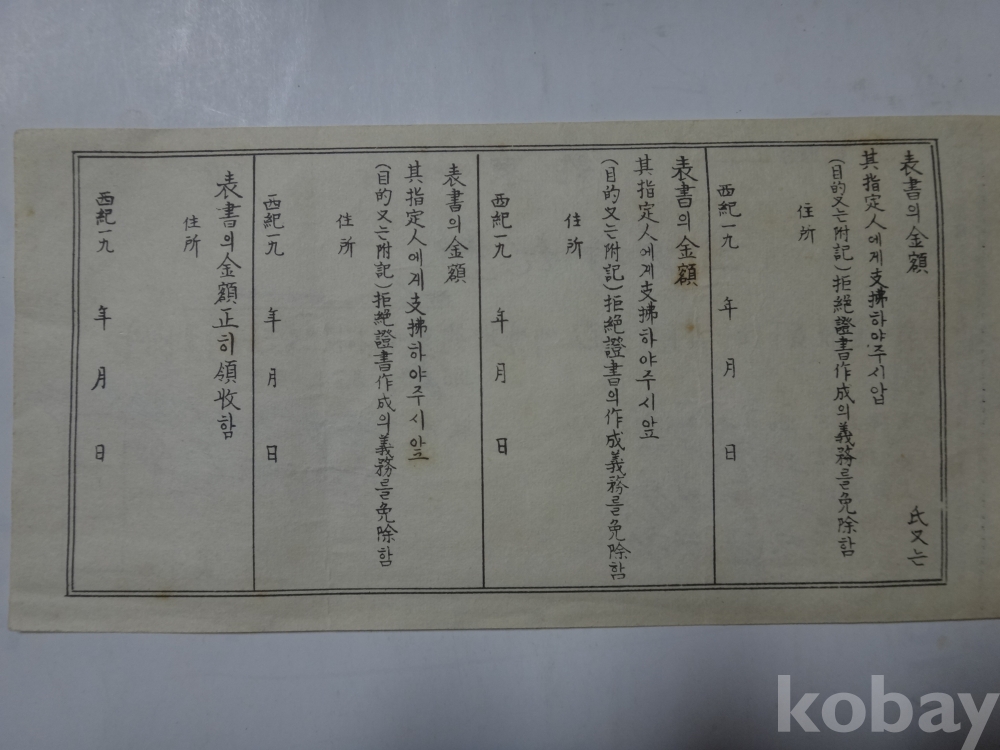 表書의金額 氏又는
其指定人에게支拂하야주시압
(目的又는附記)拒絶證書作成의義務를免除함
住所
西紀一九 年 月 日
表書의金額
其指定人에게支拂하야주시앞
(目的又는附記)拒絶證書의作成義務를免除함
住所
西紀一九 年 月 日
表書의金額
其指定人에게支拂하야주시앞
(目的又는附記)拒絶證書作成의義務를免除함
住所
西紀一九 年 月 日
表書의金額正히領收함
住所
西紀一九 年 月 日
kobay